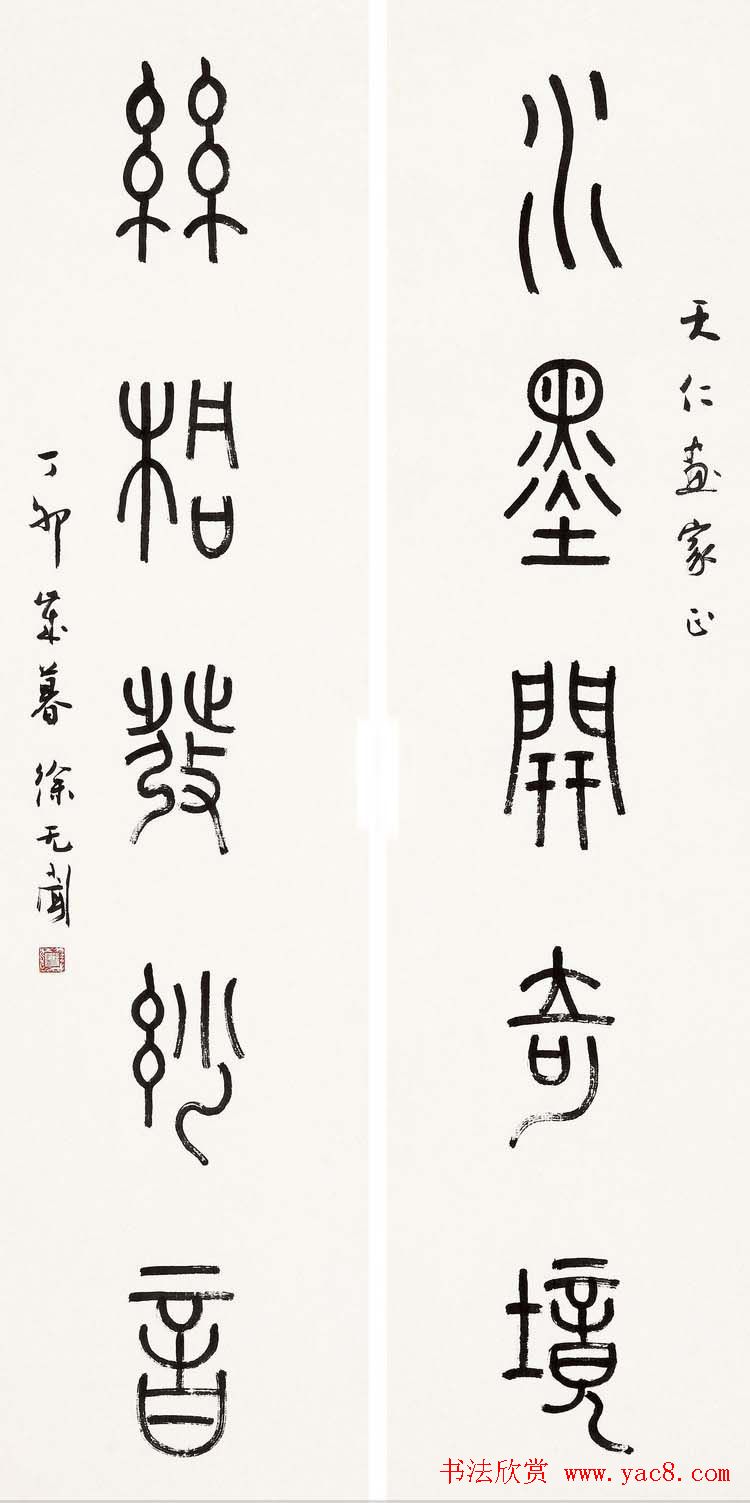 天仁画家正
水墨開奇境
絲桐發妙音
丁卯歲暮徐无聞
书法欣赏 www.yac8.com